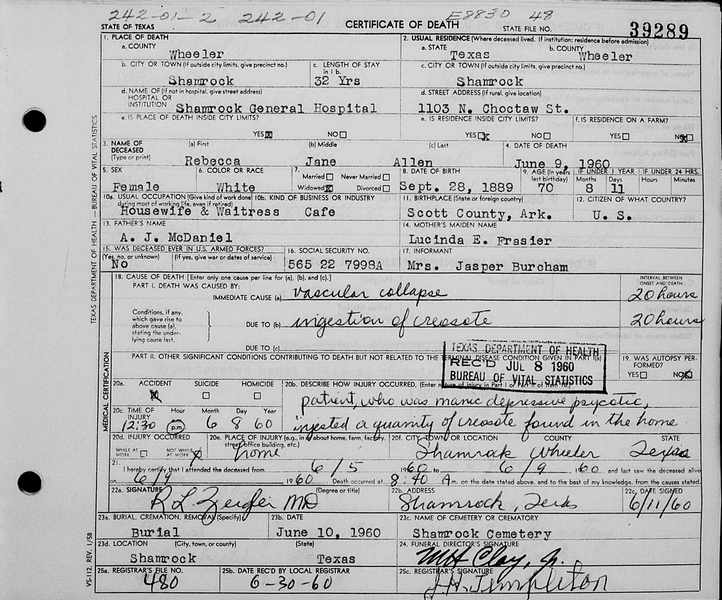 242-01-2 242-01 E8830 48
STATE OF TEXAS CERTIFICATE OF DEATH STATE FILE NO. 39289
1. PLACE OF DEATH 2. USUAL RESIDENCE (Where deceased lived. If institution: residence before admission)
a. COUNTY a. STATE b. COUNTY
Wheeler Texas Wheeler
b. CITY OR TOWN (If outside city limits, give precinct no.) c. LENGTH OF STAY in 1 b. c. CITY OR TOWN (If outside city limits, give precinct no.)
Shamrock 32 Yrs Shamrock
d. NAME OF (If not in hospital, give street address) HOSPITAL OR INSTITUTION d. STREET ADDRESS (If rural, give location)
Shamrock General Hospital 1103 N. Choctaw St.
e. IS PLACE OF DEATH INSIDE CITY LIMITS? e. IS RESIDENCE INSIDE CITY LIMITS? f. IS RESIDENCE ON A FARM?
YES NO YES NO YES NO
3. NAME OF DECEASED (Type or print) (a) First (b) Middle (c) Last 4. DATE OF DEATH
Rebecca Jane Allen June 9, 1960
5. SEX 6. COLOR OR RACE 7. Married Never Married Widowed Divorced 8. DATE OF BIRTH 9. AGE (In years last birthday) IF UNDER 1 YEAR Months Days IF UNDER 24 HRS. Hours Minutes
Female White Sept. 28, 1889 70 8 11
10a. USUAL OCCUPATION (Give kind of work done during most of working life, even if retired) 10b. KIND OF BUSINESS OR INDUSTRY 11. BIRTHPLACE (State or foreign country) 12. CITIZEN OF WHAT COUNTRY?
Housewife & Waitress Cafe Scott County, Ark. U. S.
13. FATHER'S NAME 14. MOTHER'S MAIDEN NAME
A. J. McDaniel Lucinda E. Frasier
15. WAS DECEASED EVER IN U.S. ARMED FORCES? (Yes, no, or unknown) (If yes, give war or dates of service) 16. SOCIAL SECURITY NO. 17. INFORMANT
No 565 22 7998A Mrs. Jasper Burcham
18. CAUSE OF DEATH [Enter only one cause per line for (a), (b), and (c).] INTERVAL BETWEEN ONSET AND DEATH
PART I. DEATH WAS CAUSED BY:
IMMEDIATE CAUSE (a) vascular collapse 20 hours
Conditions, if any, which gave rise to above cause (a), stating the underlying cause last.
DUE TO (b) ingestion of creosote 20 hours
DUE TO (c)
PART II. OTHER SIGNIFICANT CONDITIONS CONTRIBUTING TO DEATH BUT NOT RELATED TO THE TERMINAL DISEASE CONDITION GIVEN IN PART I(a) 19. WAS AUTOPSY PERFORMED?
YES NO
TEXAS DEPARTMENT OF HEALTH
REC'D JUL 8 1960
BUREAU OF VITAL STATISTICS
20a. ACCIDENT SUICIDE HOMICIDE 20b. DESCRIBE HOW INJURY OCCURRED. (Enter nature of injury in Part I or Part II of item 18.)
patient, who was manic depressive psychotic,
20c. TIME OF INJURY Hour Month Day Year
12:30 p.m. 6 8 60 ingested a quantity of creosote found in the home
20d. INJURY OCCURRED WHILE AT WORK NOT WHILE AT WORK 20e. PLACE OF INJURY (e.g., in or about home, farm, factory, street, office building, etc.) 20f. CITY, TOWN, OR LOCATION COUNTY STATE
home Shamrock Wheeler Texas
21. I hereby certify that I attended the deceased from 6/5 1960 to 6/9 1960 and last saw the deceased alive
on 6/9 1960 Death occurred at 8:40 A m. on the date stated above, and to the best of my knowledge, from the causes stated.
22a. SIGNATURE (Degree or title) 22b. ADDRESS 22c. DATE SIGNED
R L Zeigler MD Shamrock, Texas 6/11/60
23a. BURIAL, CREMATION, REMOVAL (Specify) 23b. DATE 23c. NAME OF CEMETERY OR CREMATORY
Burial June 10, 1960 Shamrock Cemetery
23d. LOCATION (City, town, or county) (State) 24. FUNERAL DIRECTOR'S SIGNATURE
Shamrock Texas Clay, Jr.
25a. REGISTRAR'S FILE NO. 25b. DATE REC'D BY LOCAL REGISTRAR 25c. REGISTRAR'S SIGNATURE
480 6-30-60 Templeton
TEXAS DEPARTMENT OF HEALTH — BUREAU OF VITAL STATISTICS
MEDICAL CERTIFICATION
VS-112 REV. 1/58